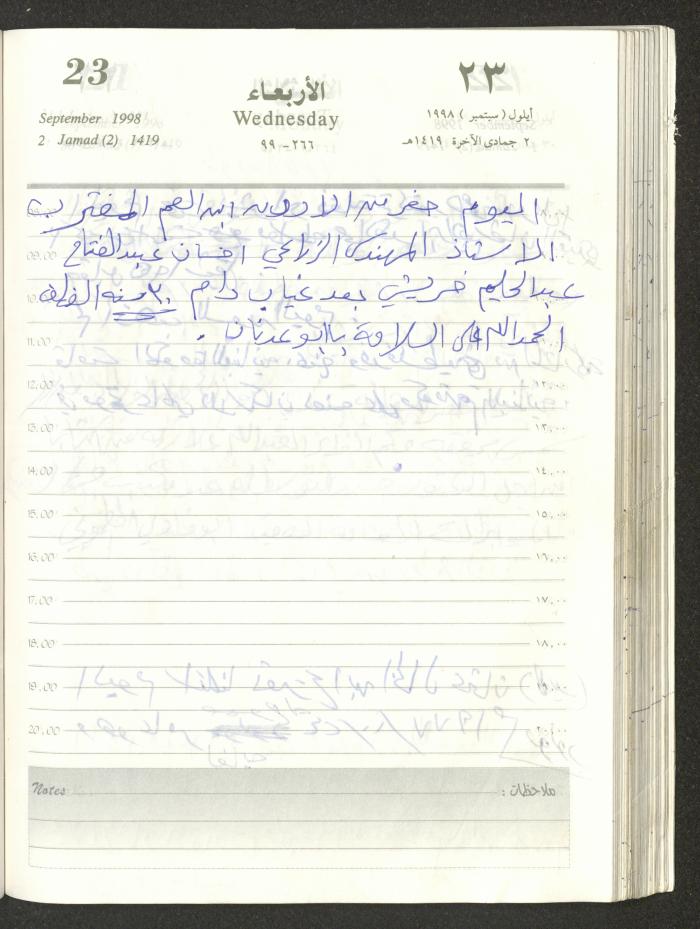 23
٢٣
الأربعاء
Wednesday
September 1998
أيلول (سبتمبر) ١٩٩٨
2 Jamad (2) 1419
٢ جمادى الآخرة ١٤١٩هـ
٢٦٦ - ٩٩
اليوم حضر من الاردن ابن العم المغترب
الاستاذ المهندس الزراعي احسان عبدالفتاح
عبدالحليم خريشي بعد غياب دام ٣٠ سنه
الحمدالله على السلامة يا ابو عدنان .
09.00
10.00
11.00
12.00
13.00 ١٣,٠٠
14.00 ١٤,٠٠
15.00 ١٥,٠٠
16.00 ١٦,٠٠
17.00 ١٧,٠٠
18.00 ١٨,٠٠
19.00
20.00
Notes
ملاحظات :